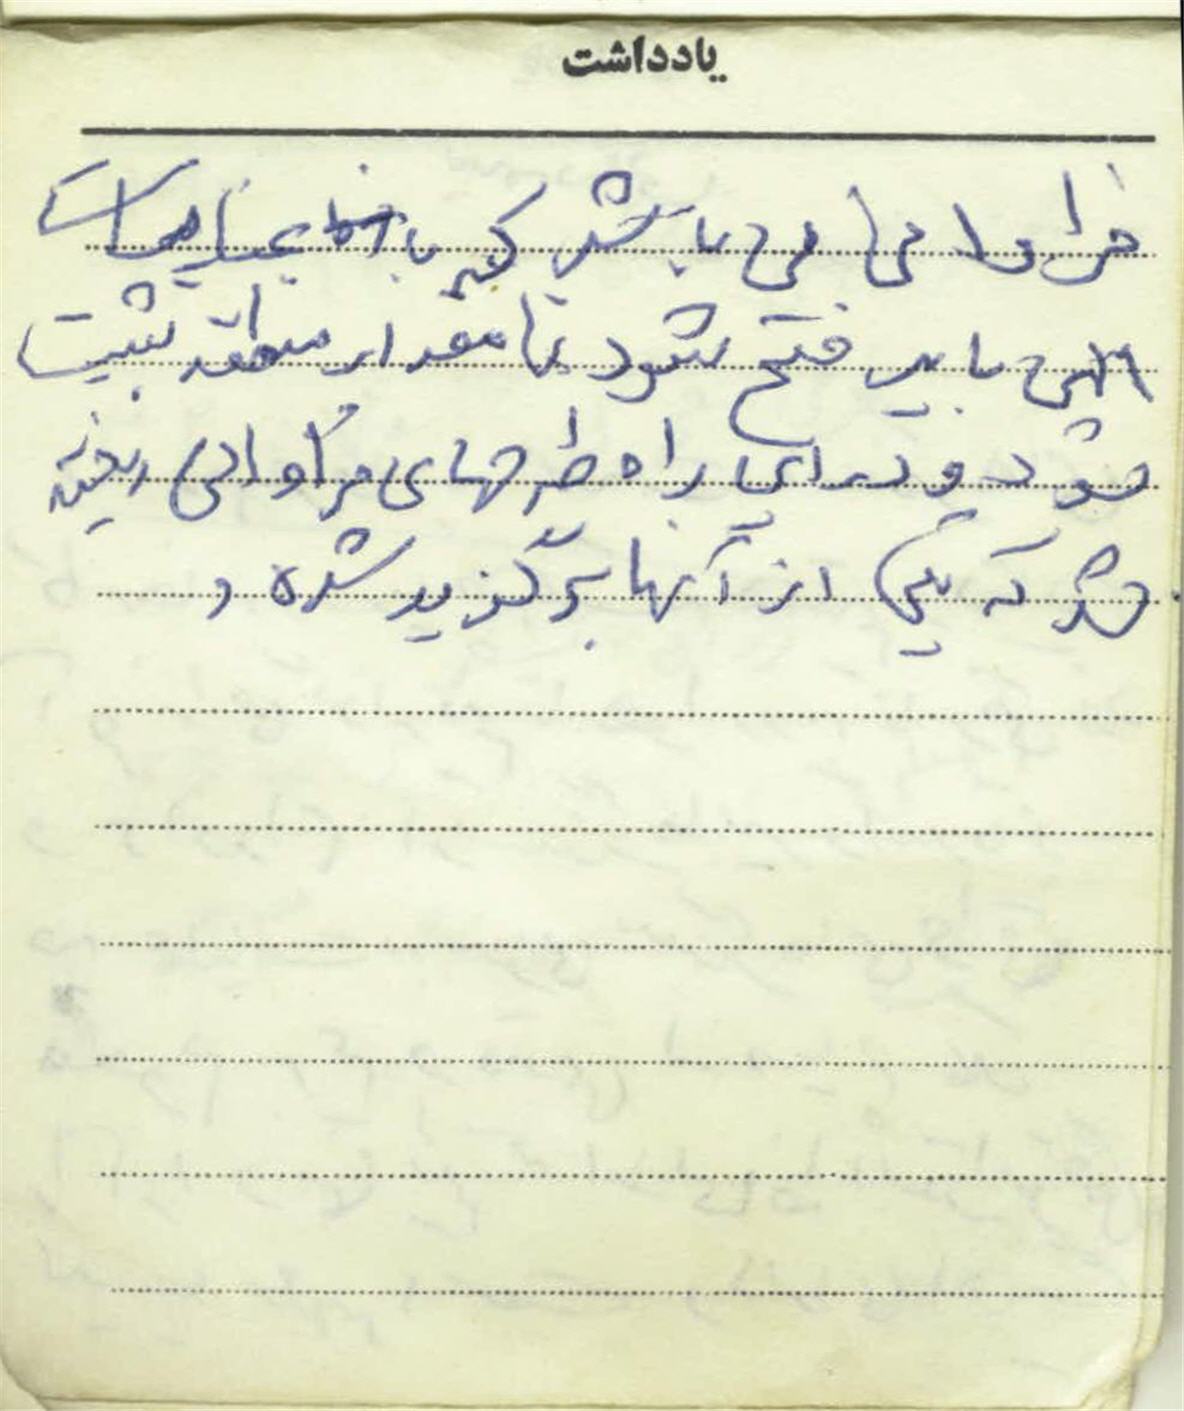 یادداشت
فراوانی می باشد که با عنایت
الهی باید فتح شود تا مقدار منطقه تثبیت
شود و در این راه طرحهای فراوانی ریخته
شد که یکی از آنها برگزیده شده و